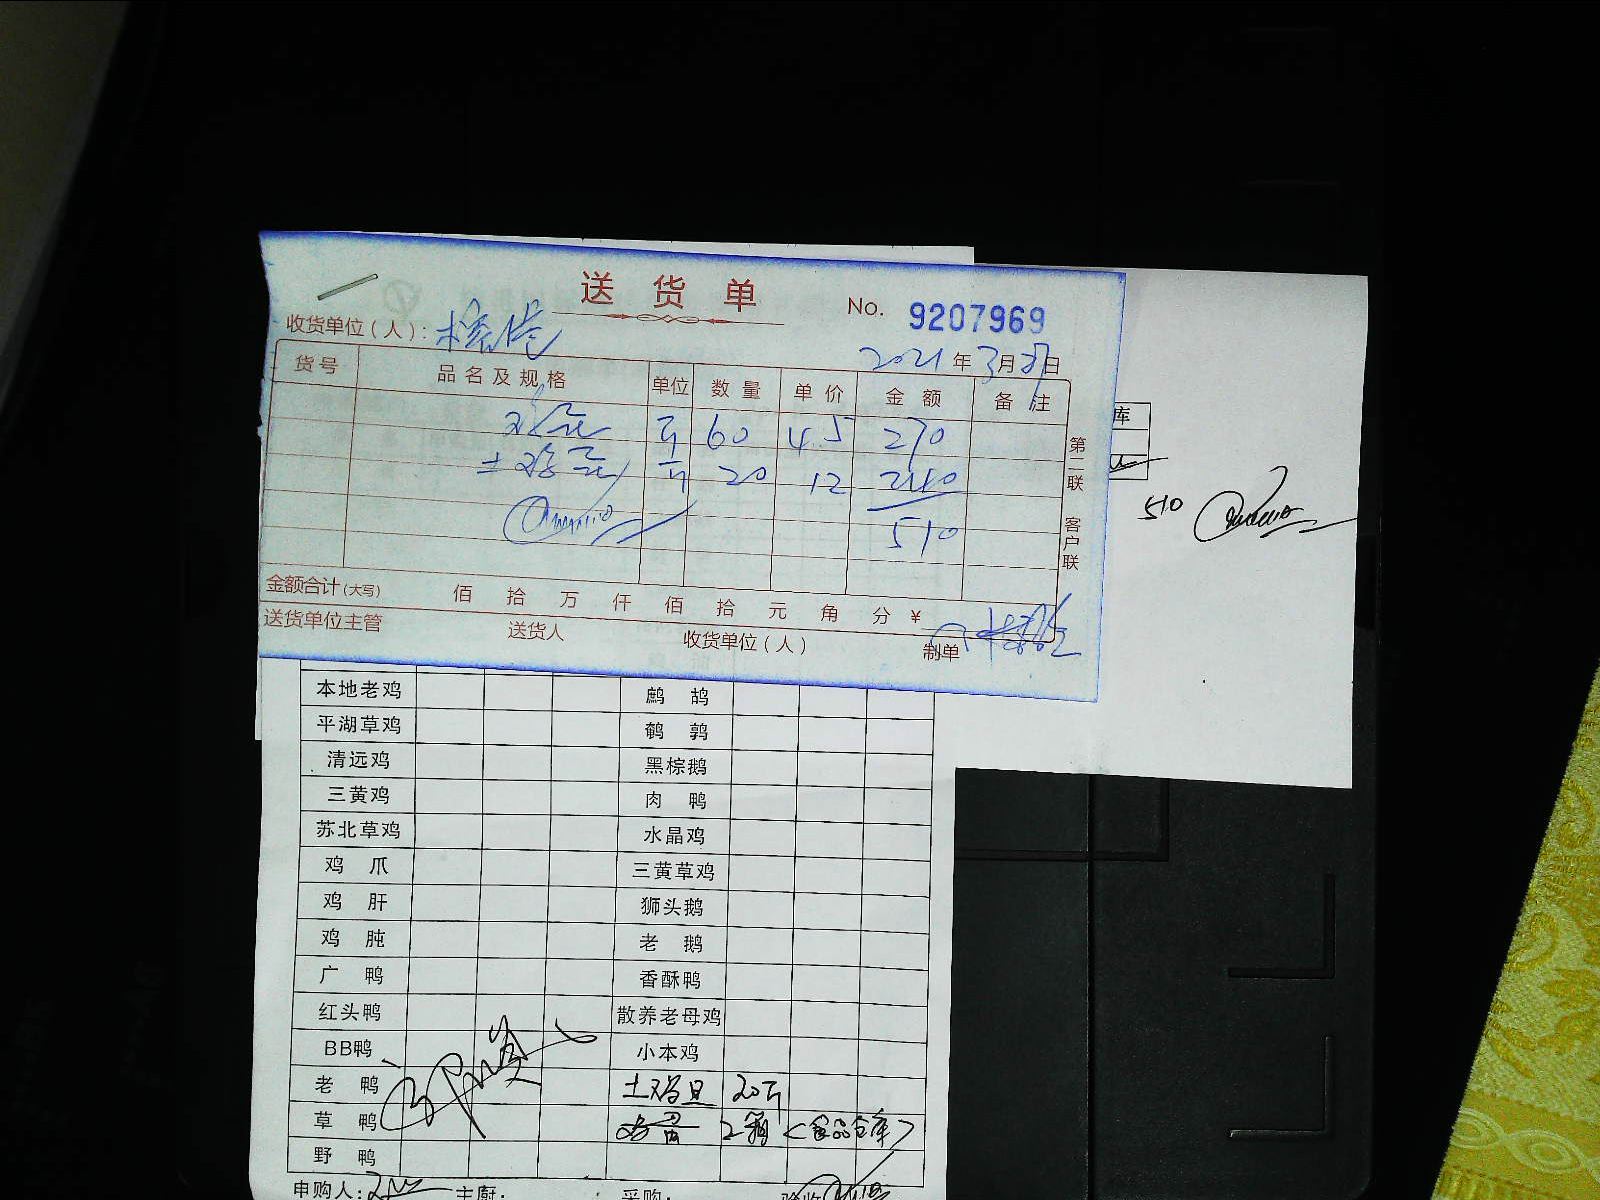 送货单
No. 9207969
收货单位(人):
2021年3月日
货号 品名及规格 单位 数量 单价 金额 备注
鸡蛋 斤 60 4.5 270
土鸡蛋 斤 20 12 240
510
金额合计(大写) 佰 拾 万 仟 佰 拾 元 角 分 ¥
送货单位主管 送货人 收货单位(人) 制单
第二联 客户联
库
510
本地老鸡 鹧鸪
平湖草鸡 鹌鹑
清远鸡 黑棕鹅
三黄鸡 肉鸭
苏北草鸡 水晶鸡
鸡爪 三黄草鸡
鸡肝 狮头鹅
鸡肫 老鹅
广鸭 香酥鸭
红头鸭 散养老母鸡
BB鸭 小本鸡
老鸭 土鸡旦 20斤
草鸭 鸡蛋 2箱 <食品仓库>
野鸭
申购人: 主厨: 采购: 验收